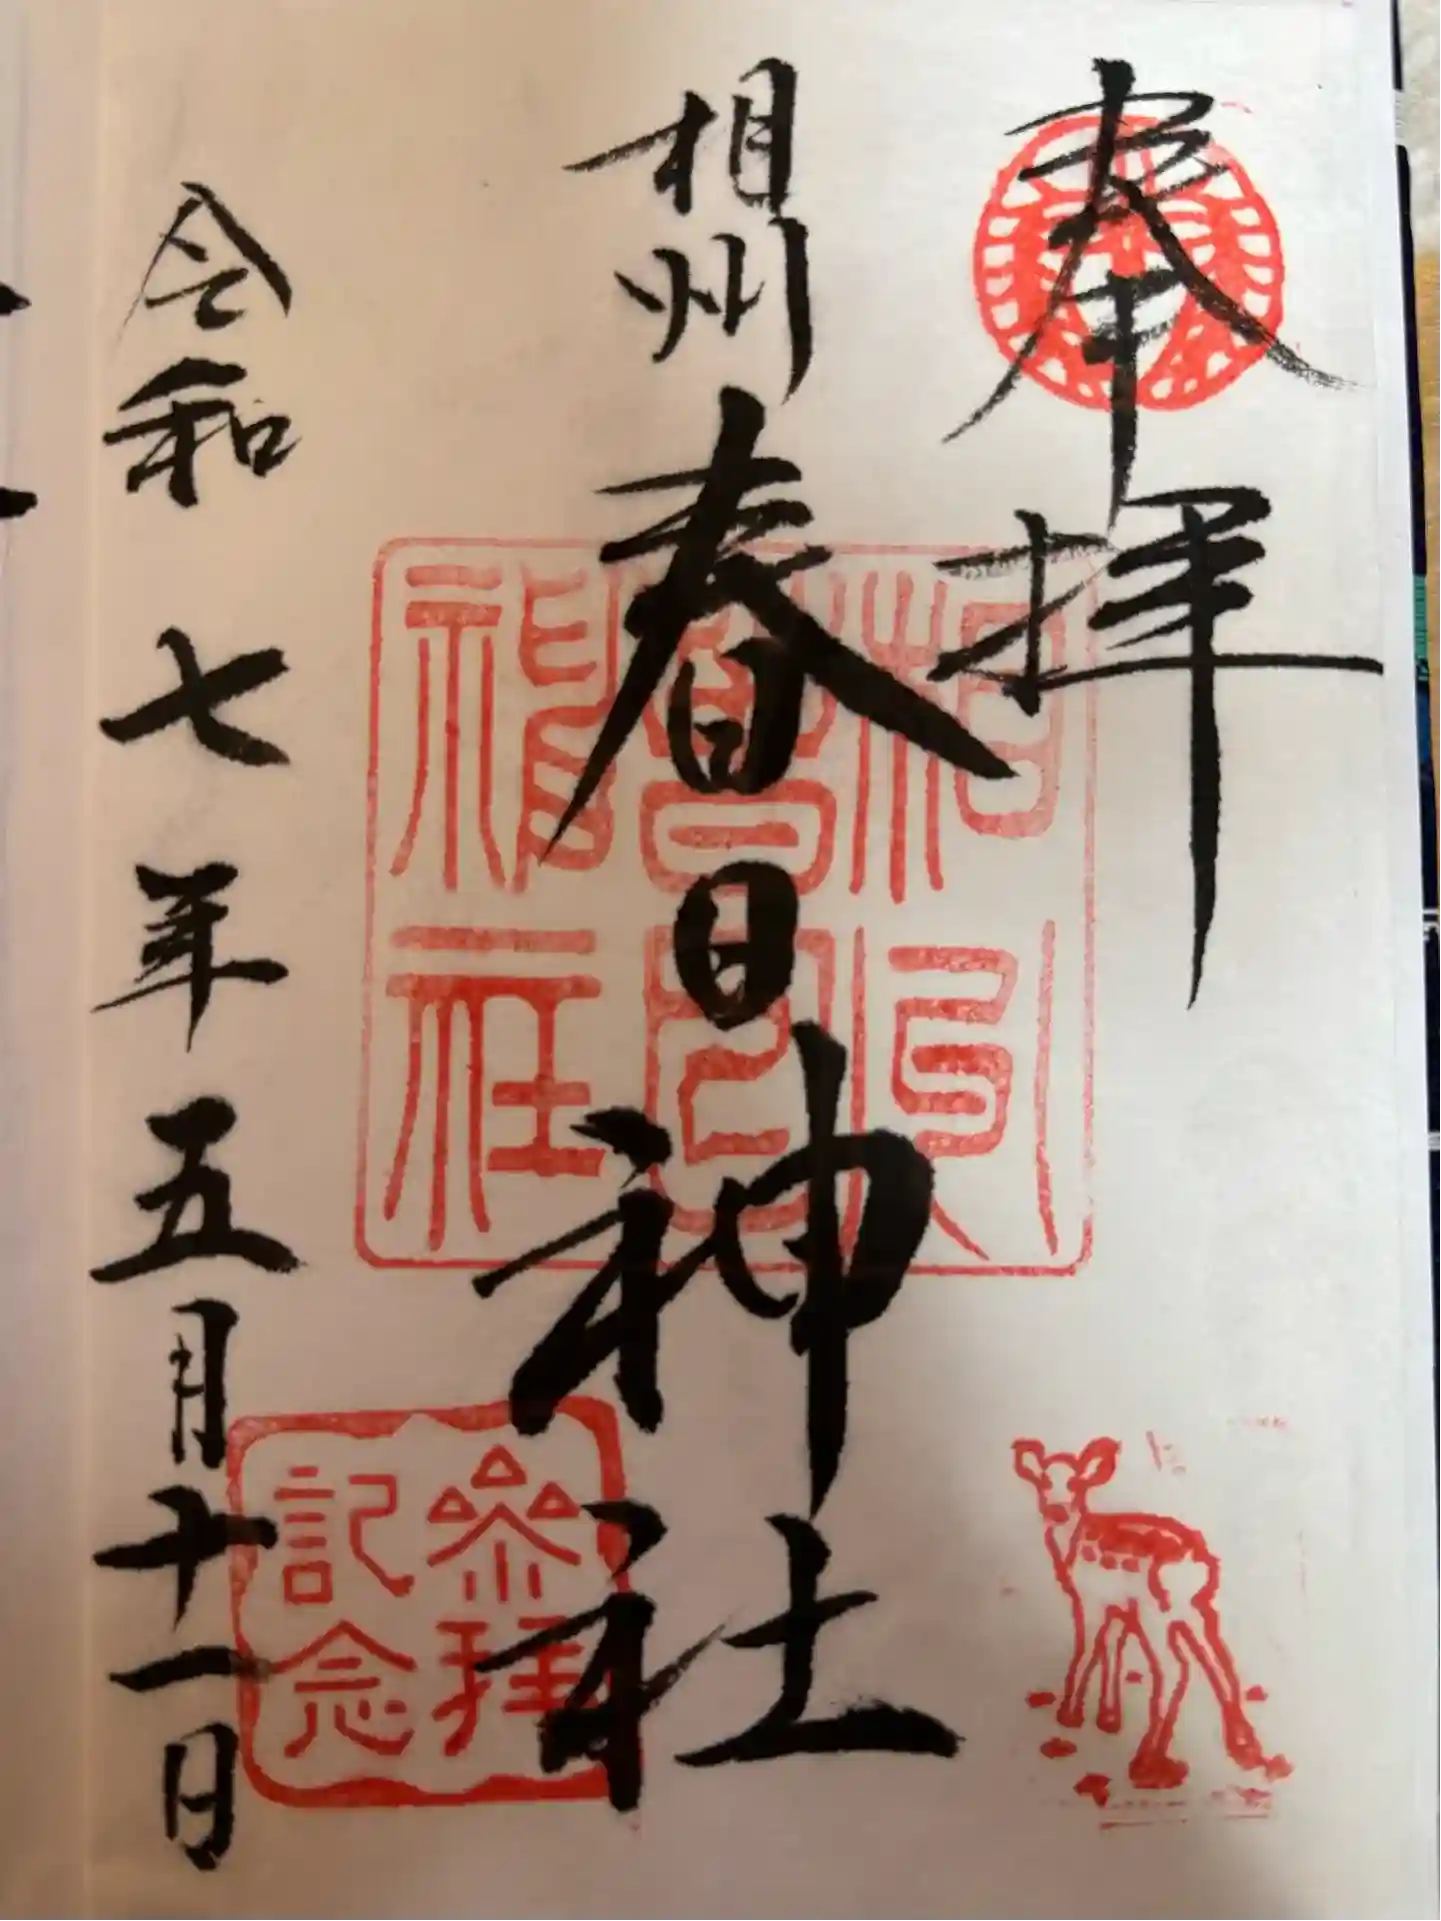 奉拝
相州
春日神社
相州
春日
神社
参拝
記念
令和七年五月十一日